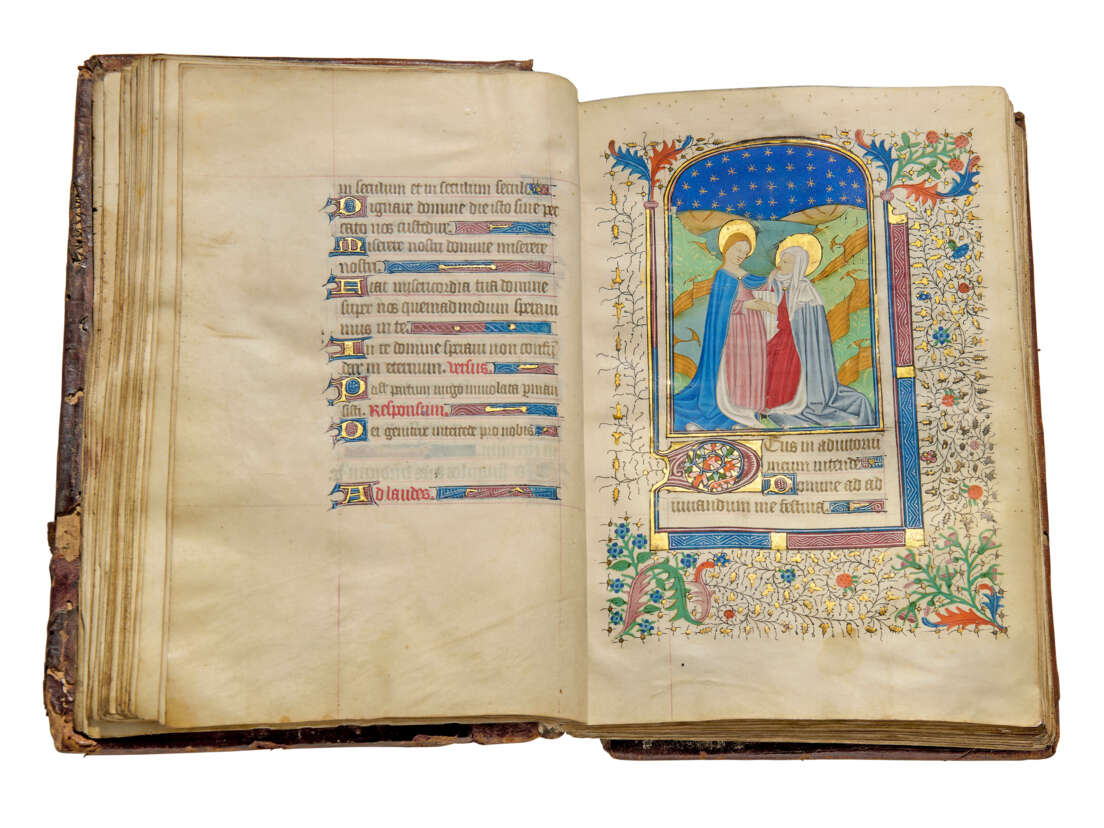 in seculum et in seculum seculi
Dignare domine die isto sine pec
cato nos custodire
Miserere nostri domine miserere
nostri
fiat misericordia tua domine
super nos quemadmodum speraui
mus in te
In te domine speraui non confun
dar in eternum versus
Post partum virgo inviolata perman
sisti Responsum
Dei genitrix intercede pro nobis
Ad laudes
Deus in adiutoriu
meum intende
Domine ad ad
iuuandum me festina